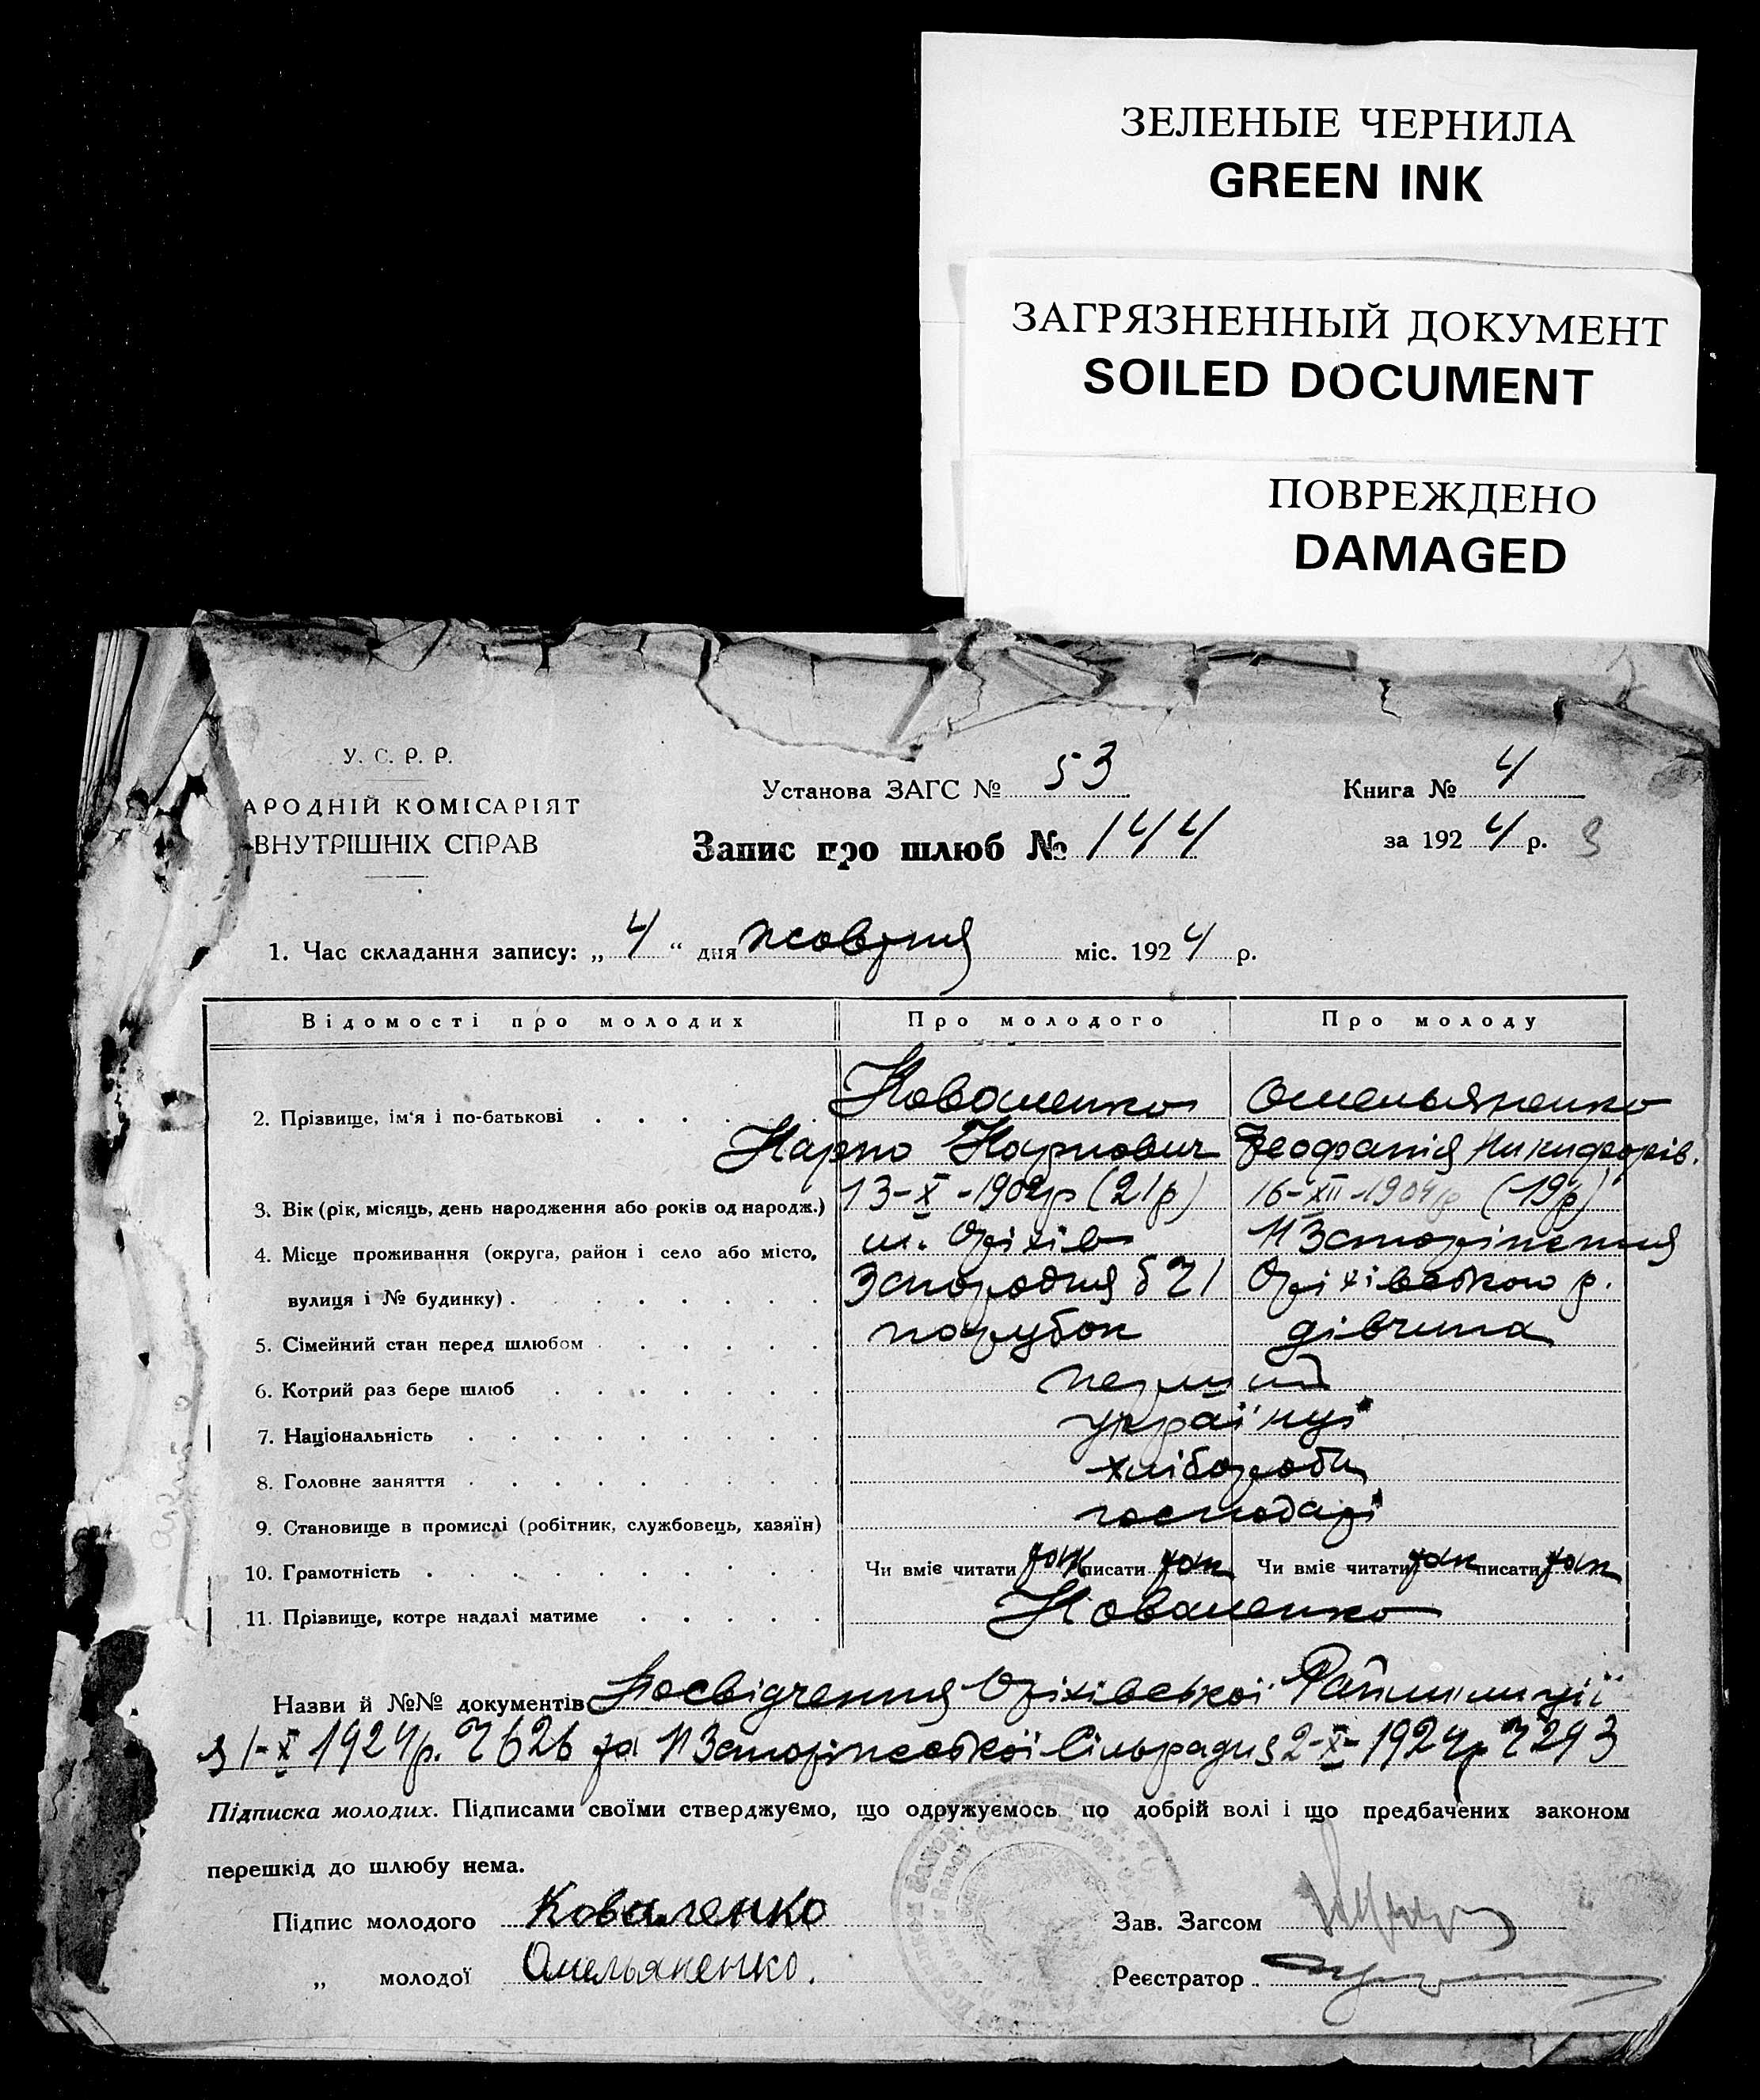 ЗЕЛЕНЫЕ ЧЕРНИЛА
GREEN INK
ЗАГРЯЗНЕННЫЙ ДОКУМЕНТ
SOILED DOCUMENT
ПОВРЕЖДЕНО
DAMAGED
У. С. Р. Р.
АРОДНІЙ КОМІСАРІЯТ
ВНУТРІШНІХ СПРАВ
Установа ЗАГС № 53
Книга № 4
Запис про шлюб № 144
за 1924 р. 3
1. Час складання запису: „4“ дня жовтня міс. 1924 р.
Відомості про молодих Про молодого Про молоду
2. Прізвище, ім'я і по-батькові Коваленко Омельяненко
Карпо Карпович Теофанія Никифорів.
3. Вік (рік, місяць, день народження або років од народж.) 13-X-1902р (21р) 16-XII-1904р (19р)
4. Місце проживання (округа, район і село або місто, м. Оріхів
вулиця і № будинку) Запородня б 21 Оріхівською р.
5. Сімейний стан перед шлюбом парубок дівчина
6. Котрий раз бере шлюб перший
7. Національність українці
8. Головне заняття хлібороби
9. Становище в промислі (робітник, службовець, хазяїн) господарі
10. Грамотність Чи вміє читати так писати так Чи вміє читати так писати так
11. Прізвище, котре надалі матиме Коваленко
Назви й №№ документів Посвідчення Оріхівської Райміліції
з 1-X 1924р. Ч 626 та Сільради з 2-X-1924р Ч 293
Підписка молодих. Підписами своїми стверджуємо, що одружуємось по добрій волі і що предбачених законом
перешкід до шлюбу нема.
Підпис молодого Коваленко
Зав. Загсом
„ молодої Омельяненко.
Реєстратор